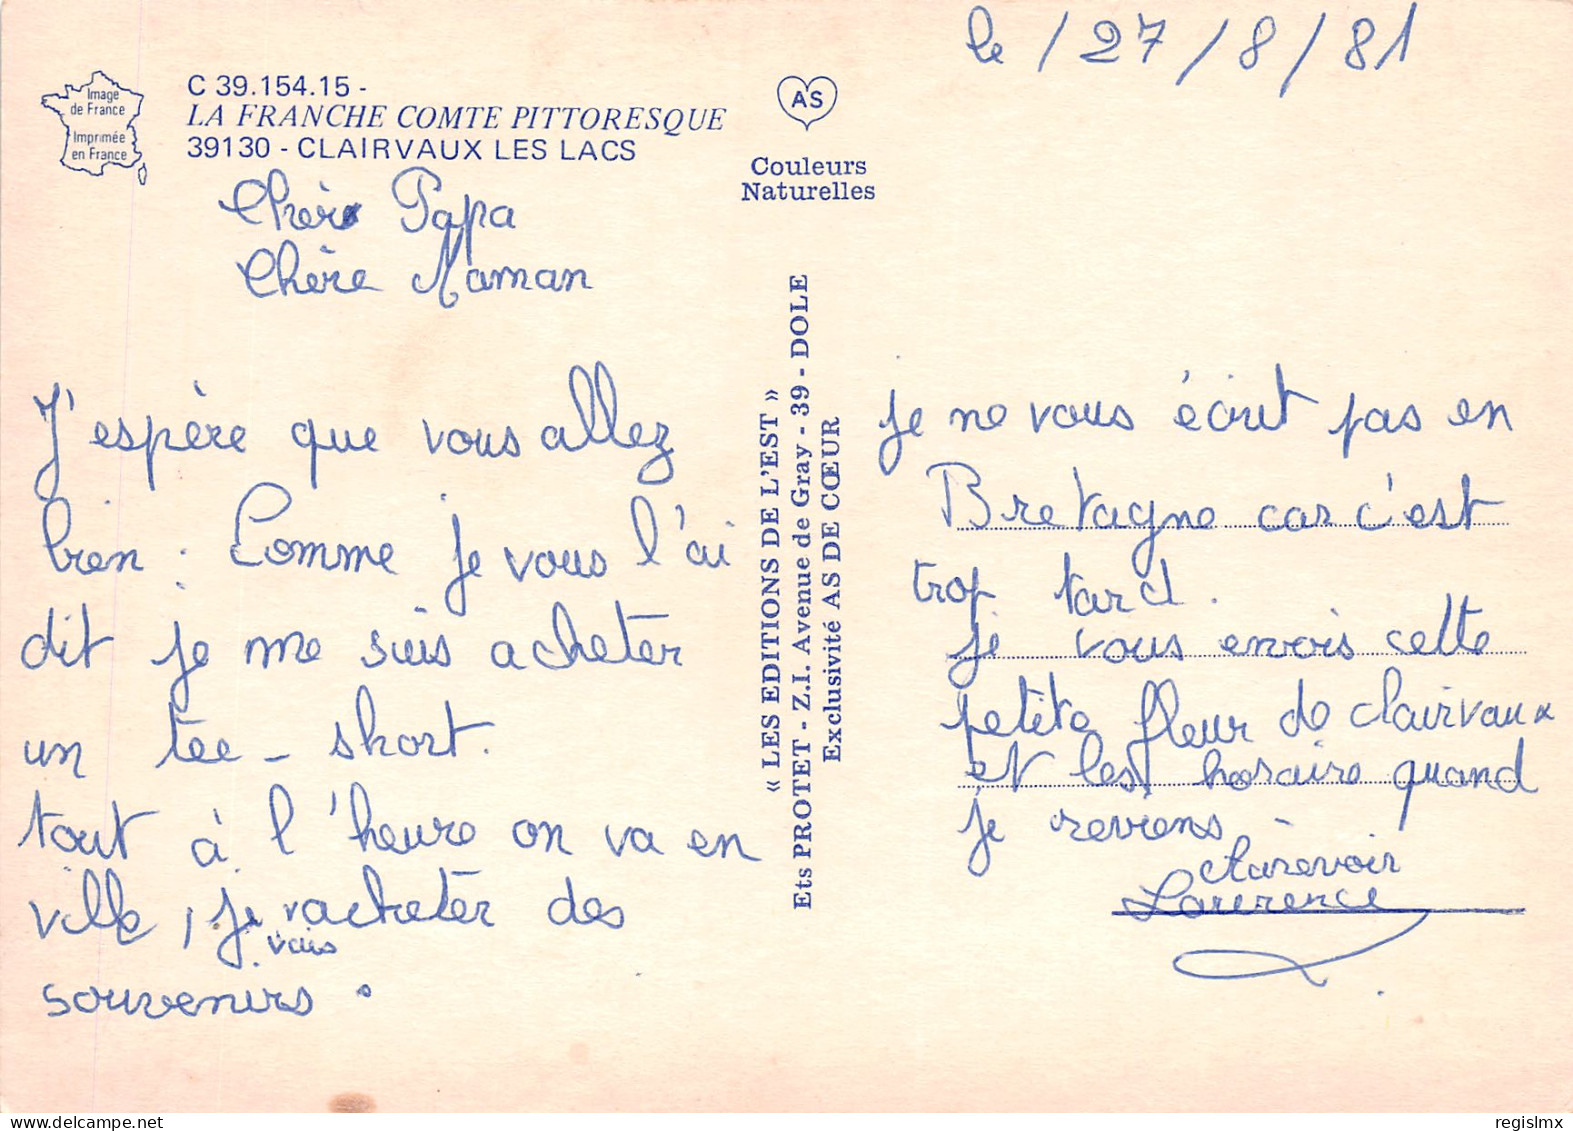 le / 27 / 8 / 81
Image
de France
Imprimée
en France
C 39.154.15 -
LA FRANCHE COMTE PITTORESQUE
39130 - CLAIRVAUX LES LACS
AS
Couleurs
Naturelles
Chère Papa
Chère Maman
J'espère que vous allez
bien : Comme je vous l'ai
dit je me suis acheter
un tee - short.
tout à l'heure on va en
ville, je vacheter des
vais
souvenirs.
« LES EDITIONS DE L'EST »
Ets PROTET - Z.I. Avenue de Gray - 39 - DOLE
Exclusivité AS DE CŒUR
je ne vous écrit pas en
Bretagne car c'est
trop tard.
je vous envois cette
petite fleur de clairvaux
et les horaire quand
je reviens -
Aurevoir
Laurence
regislmx